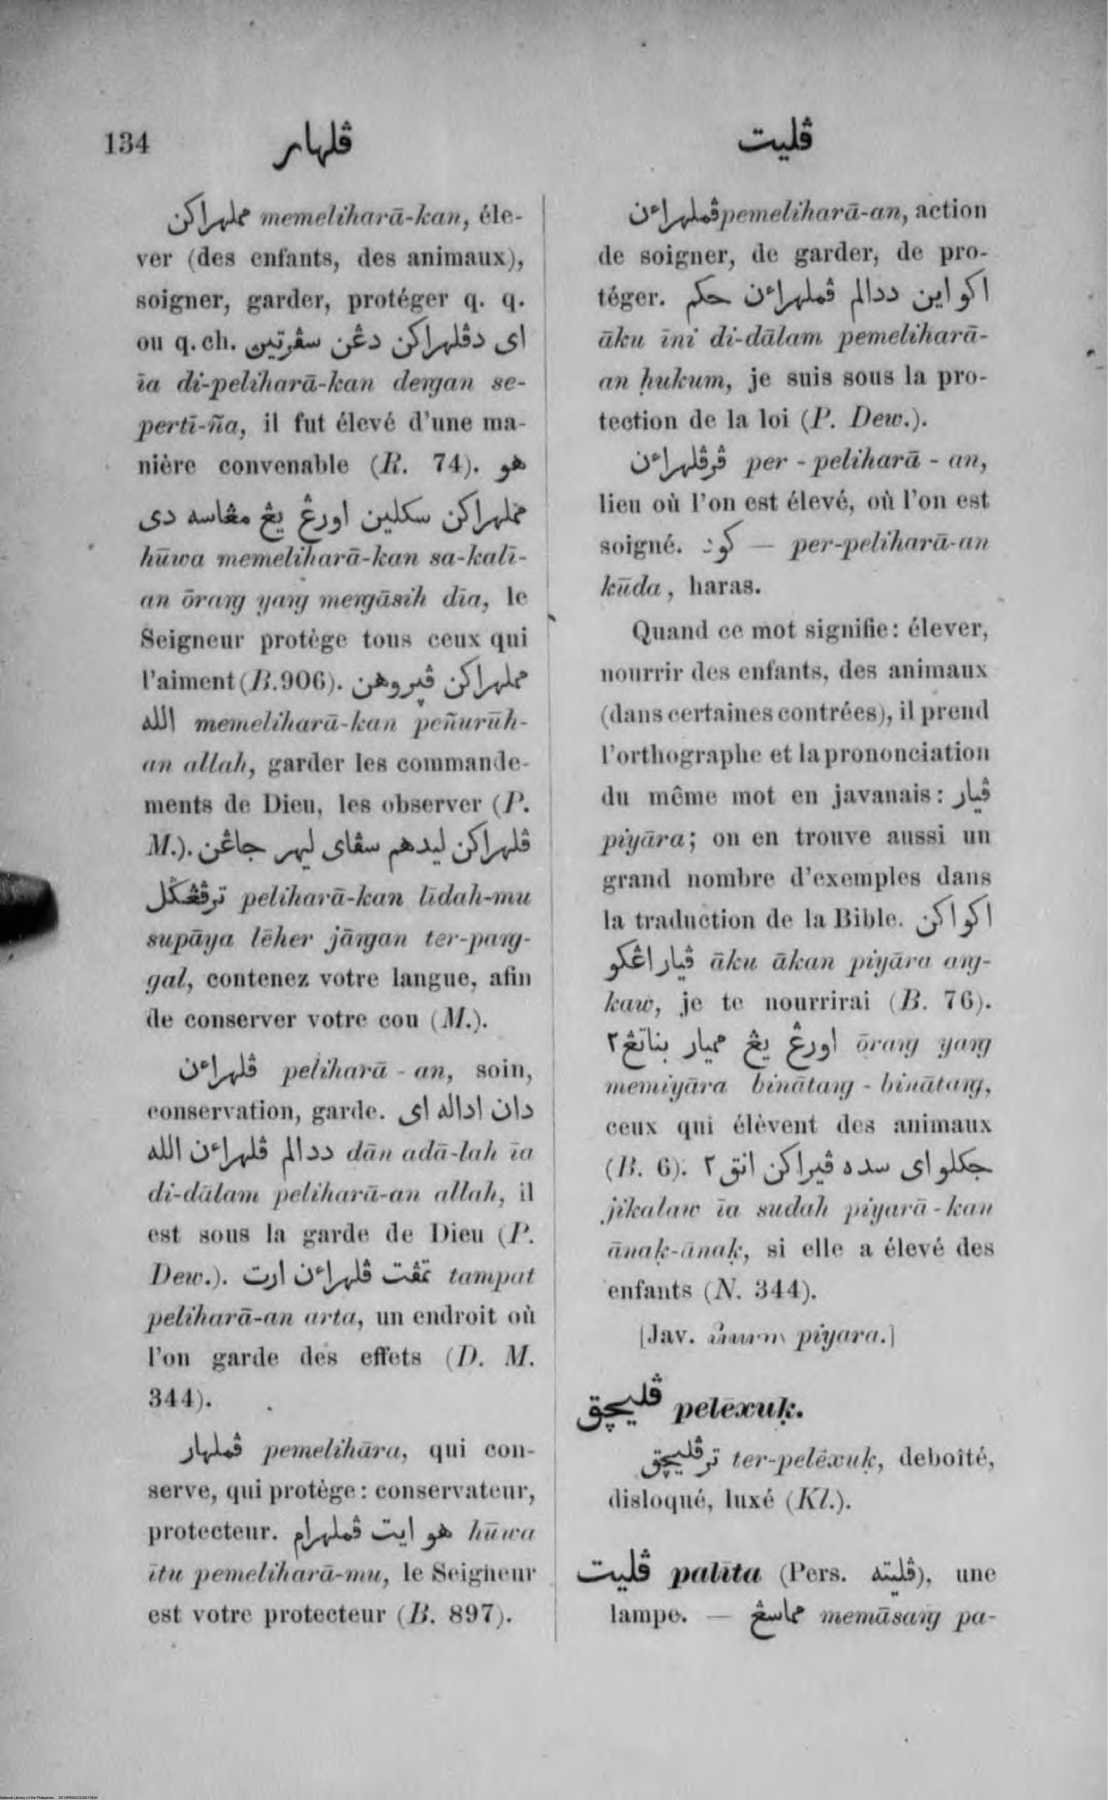 134
ڤلهار
ڤليت
مملهراكن memeliharā-kan, éle-
ver (des enfants, des animaux),
soigner, garder, protéger q. q.
ou q. ch. اى دڤلهراكن دڠن سڤرتين
īa di-peliharā-kan deṅgan se-
pertī-ña, il fut élevé d'une ma-
nière convenable (R. 74). هو
مملهراكن سكلين اورڠ يڠ مڠاسه دى
hūwa memeliharā-kan sa-kalī-
an ōraṅg yaṅg meṅgāsih dīa, le
Seigneur protège tous ceux qui
l'aiment (B. 906). مملهراكن ڤڽروهن
الله memeliharā-kan peñurūh-
an allah, garder les commande-
ments de Dieu, les observer (P.
M.). ڤلهراكن ليدهم سڤاى ليهر جاڠن
ترڤڠݢل peliharā-kan līdah-mu
supāya lēher jāṅgan ter-paṅg-
gal, contenez votre langue, afin
de conserver votre cou (M.).
ڤلهراءن peliharā - an, soin,
conservation, garde. دان اداله اى
ددالم ڤلهراءن الله dān adā-lah īa
di-dālam peliharā-an allah, il
est sous la garde de Dieu (P.
Dew.). تمڤت ڤلهراءن ارت tampat
peliharā-an arta, un endroit où
l'on garde des effets (D. M.
344).
ڤملهار pemelihāra, qui con-
serve, qui protège: conservateur,
protecteur. هو ايت ڤملهرام hūwa
ītu pemeliharā-mu, le Seigneur
est votre protecteur (B. 897).
ڤملهراءن pemeliharā-an, action
de soigner, de garder, de pro-
téger. اكو اين ددالم ڤملهراءن حكم
āku īni di-dālam pemeliharā-
an ḥukum, je suis sous la pro-
tection de la loi (P. Dew.).
ڤرڤلهراءن per - peliharā - an,
lieu où l'on est élevé, où l'on est
soigné. كود — per-peliharā-an
kūda, haras.
Quand ce mot signifie: élever,
nourrir des enfants, des animaux
(dans certaines contrées), il prend
l'orthographe et la prononciation
du même mot en javanais: ڤيار
piyāra; on en trouve aussi un
grand nombre d'exemples dans
la traduction de la Bible. اكو اكن
ڤيار اڠكو āku ākan piyāra aṅg-
kaw, je te nourrirai (B. 76).
اورڠ يڠ ميار بناتڠ٢ ōraṅg yaṅg
memiyāra binātaṅg - binātaṅg,
ceux qui élèvent des animaux
(B. 6). جكلو اى سده ڤيراكن انق٢
jikalaw īa sudah piyarā - kan
ānaḳ-ānaḳ, si elle a élevé des
enfants (N. 344).
[Jav. piyara.]
ڤليچق pelēxuḳ.
ترڤليچق ter-pelēxuḳ, deboîté,
disloqué, luxé (Kl.).
ڤليت palīta (Pers. ڤليته), une
lampe. — مماسڠ memāsaṅg pa-